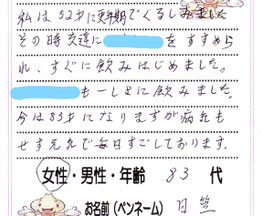 私は52才に更年期でくるしみました
その時友達に をすすめら
れ、すぐに飲みはじめました。
もーしょに飲みました。
今は83才になりますが病気も
せず元気で毎日すごしております。
女性・男性・年齢 83 代
お名前(ペンネーム) 日笠